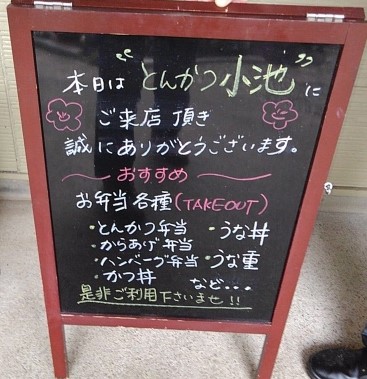 本日は "とんかつ小池" に
ご来店頂き
誠にありがとうございます。
おすすめ
お弁当各種(TAKEOUT)
・とんかつ弁当 ・うな丼
・からあげ弁当
・ハンバーグ弁当 ・うな重
・かつ丼 など...
是非ご利用下さいませ!!